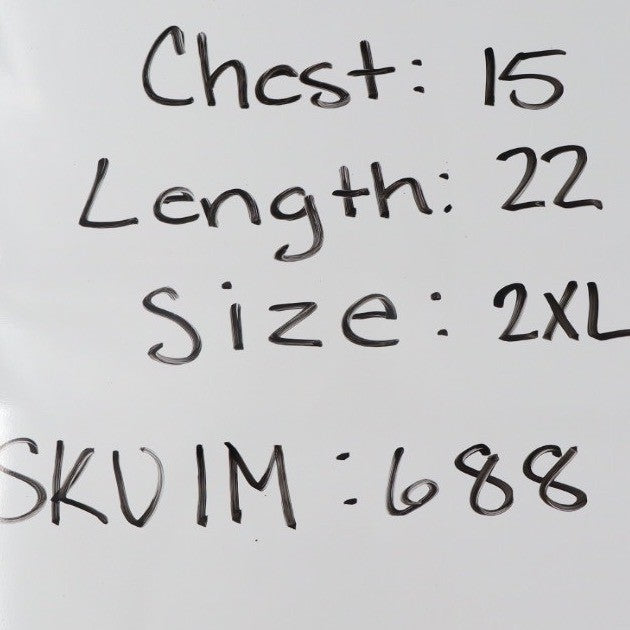 Chest: 15
Length: 22
Size: 2XL
SKU IM: 688